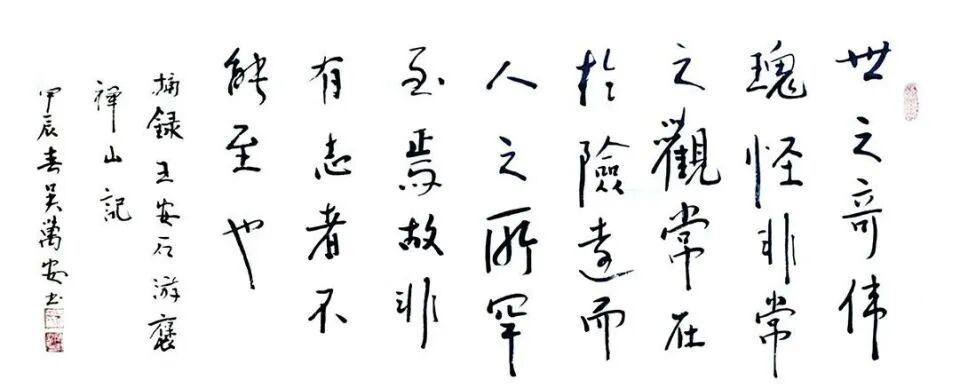 世之奇偉
瑰怪非常
之觀常在
於險遠而
人之所罕
至焉故非
有志者不
能至也
摘録王安石游褒
禪山記
甲辰春吳萬安书